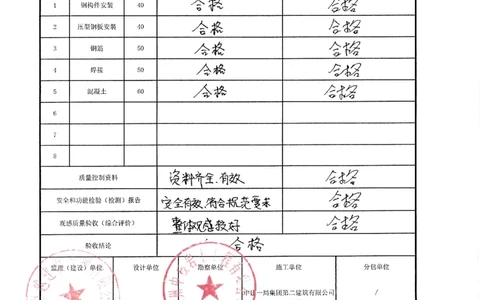 1 钢构件安装 40 合格 合格
2 压型钢板安装 40 合格 合格
3 钢筋 50 合格 合格
4 焊接 50 合格 合格
5 混凝土 60 合格 合格
6
7
8
质量控制资料 资料齐全,有效 合格
安全和功能检验(检测)报告 安全有效,符合规范要求 合格
观感质量验收(综合评价) 整体观感较好 合格
验收结论 合格
监理(建设)单位 设计单位 勘察单位 施工单位 分包单位
中建一局集团第二建筑有限公司 /